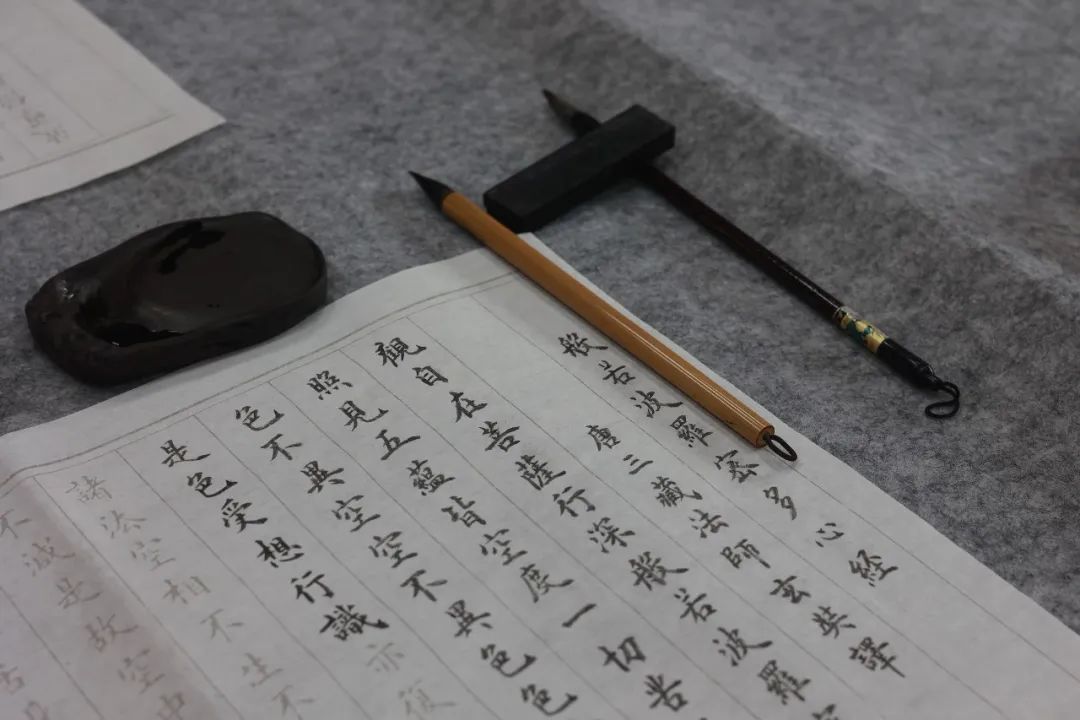 般若波羅密多心経
唐三藏法師玄奘譯
觀自在菩薩行深般若波羅
照見五蘊皆空度一切苦
色不異空空不異色色
是色受想行識亦復
諸法空相不生不
不滅是故空中
苦